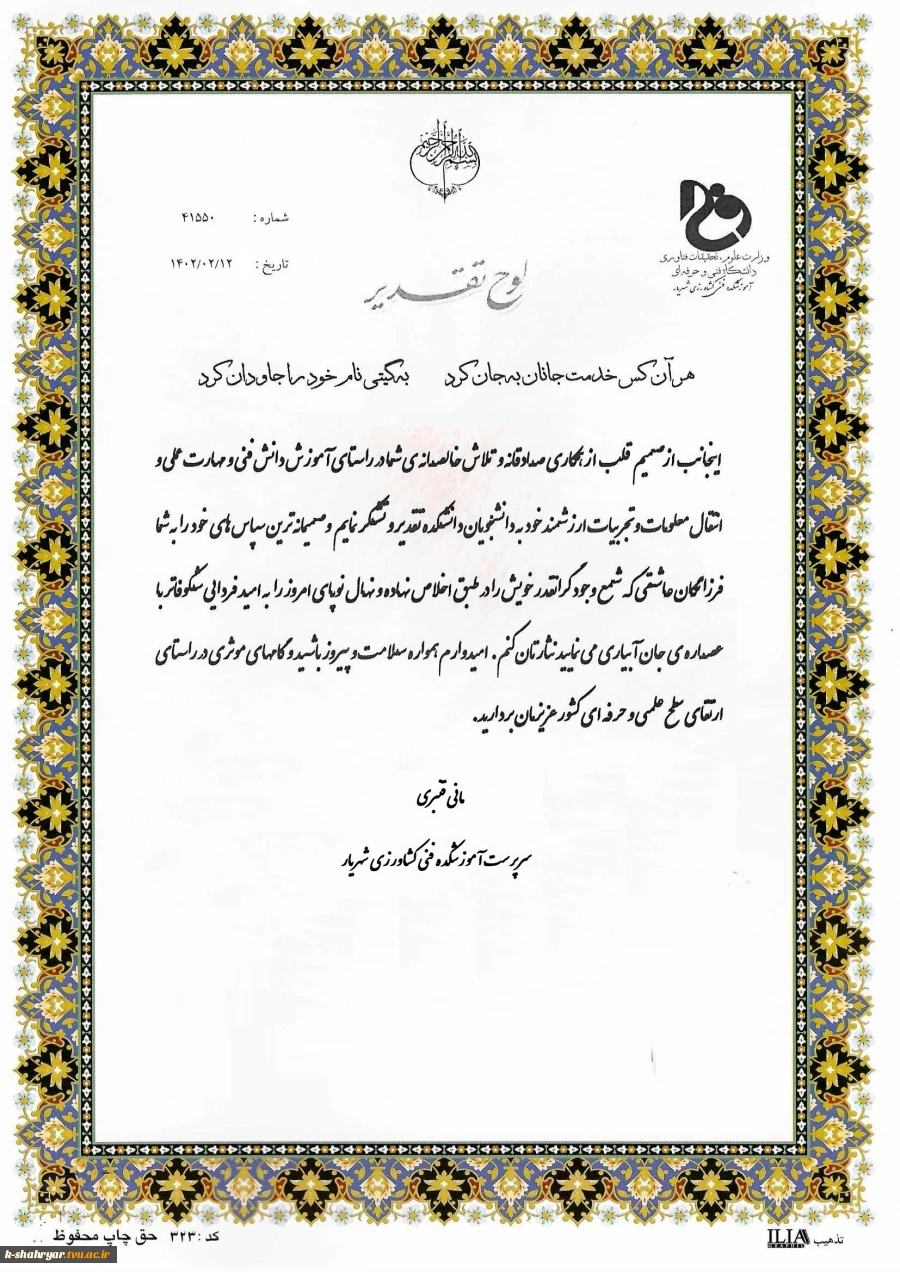 بسم الله الرحمن الرحیم
وزارت علوم، تحقیقات فناوری
دانشگاه فنی و حرفه‌ای
آموزشکده فنی کشاورزی شهریار
شماره : ۴۱۵۵۰
تاریخ : ۱۴۰۲/۰۲/۱۲
لوح تقدیر
هر آن کس خدمت جانان به جان کرد به گیتی نام خود را جاودان کرد
اینجانب از صمیم قلب از همکاری صداوقانه و تلاش خالصانه ی شما در راستای آموزش دانش فنی و مهارت عملی و
انتقال معلومات و تجربیات ارزشمند خود به دانشجویان دانشکده تقدیر و تشکر نمایم و صمیمانه ترین سپاس های خود را به شما
فرزانگان عاشقی که شمع وجود گرانقدر خویش را در طبق اخلاص نهاده و نهال نوپای امروز را به امید فردایی شکوفاتر با
عصاره ی جان آبیاری می نمایید نثارتان کنم . امیدوارم همواره سلامت و پیروز باشید و گامهای موثری در راستای
ارتقای سطح علمی و حرفه ای کشور عزیزمان بردارید.
مانی قنبری
سرپرست آموزشکده فنی کشاورزی شهریار
تذهیب ILIA GRAPHIC
کد : ۳۲۳ حق چاپ محفوظ
k-shahryar.tvu.ac.ir